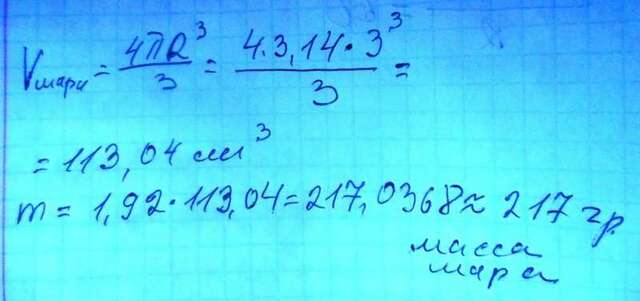 Vшара = 4πR³/3 = 4·3,14·3³/3 =
= 113,04 см³
m = 1,92·113,04=217,0368≈ 217 гр.
масса
шара